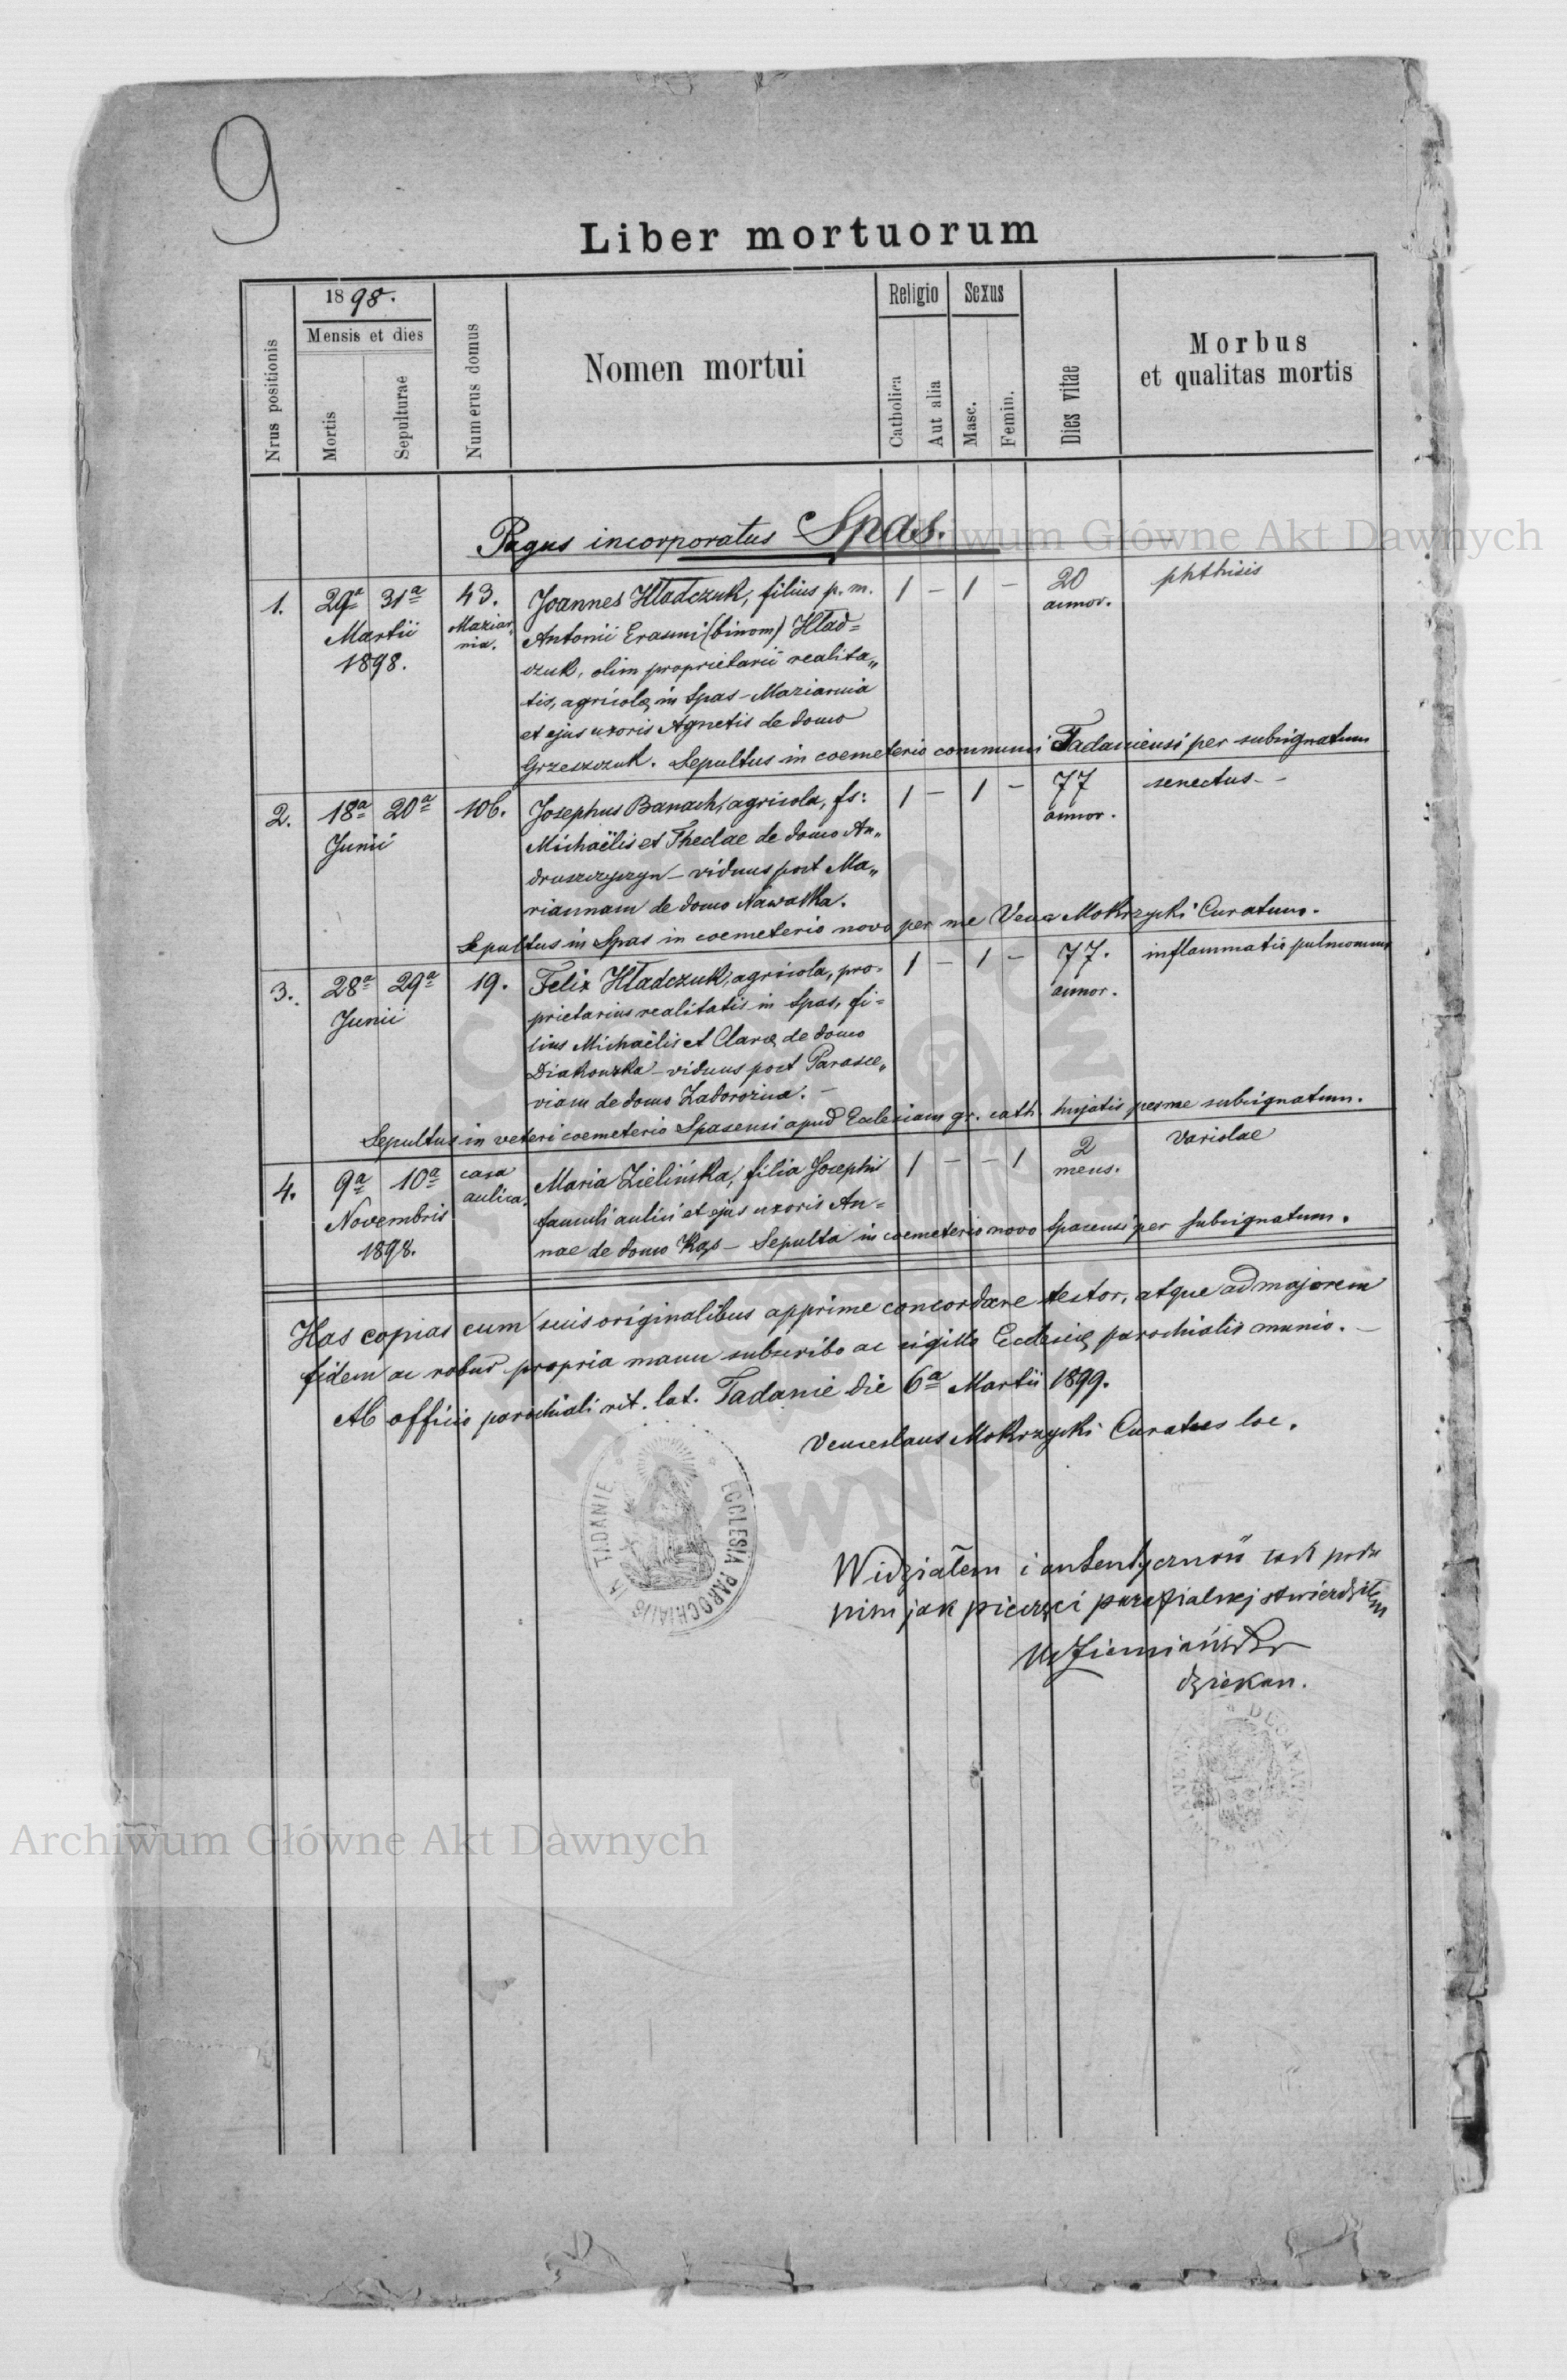 9
Liber mortuorum
Nrus positionis
1898.
Mensis et dies
Mortis
Sepulturae
Numerus domus
Nomen mortui
Religio
Catholica
Aut alia
Sexus
Masc.
Femin.
Dies vitae
Morbus
et qualitas mortis
Pagus incorporatus Spas.
1. 29a 31a 43. Joannes Hładczuk, filius p. m. 1 – 1 – 20 phthisis
Martii Maziar- Antonii Erasmi (binom) Hład= annor.
1898. nia. czuk, olim proprietarii realita„
tis, agricolae in Spas – Maziarnia
et ejus uxoris Agnetis de domo
Grzeszczuk. Sepultus in coemeterio communi Tadaniensi per subsignatum
2. 18a 20a 106. Josephus Banach, agricola, fs: 1 – 1 – 77 senectus –
Junii Michaëlis et Theclae de domo An„ annor.
druszczyszyn – viduus post Ma„
riannam de domo Nawalka.
Sepultus in Spas in coemeterio novo per me Venc Mokrzycki Curatum.
3. 28a 29a 19. Felix Hładczuk, agricola, pro- 1 – 1 – 77. inflammatio pulmonum
Junii prietarius realitatis in Spas, fi= annor.
lius Michaëlis et Clarae de domo
Diakonzka – viduus post Parasce„
viam de domo Zadorozna. –
Sepultus in veteri coemeterio Spasensi apud Ecclesiam gr. cath. hujatis per me subsignatum.
4. 9a 10a casa Maria Zielińska, filia Josephi 1 – – 1 2 Variolae
Novembris aulica. famuli aulici et ejus uxoris An= mens.
1898. nae de domo Kap – Sepulta in coemeterio novo Spasensi per subsignatum.
Has copias cum suis originalibus apprime concordare testor, atque ad majorem
fidem ac robur propria manu subscribo ac sigillo Ecclesiae parochialis munio. –
Ab officio parochiali rit. lat. Tadanie die 6a Martii 1899.
Venceslaus Mokrzycki Curatus loc.
ECCLESIA PAROCHIALIS TADANIE
Widziałem i autentyczność tak podu
pism jak pieczęci parafialnej stwierdziłem
dziekan.
Archiwum Główne Akt Dawnych
Archiwum Główne Akt Dawnych